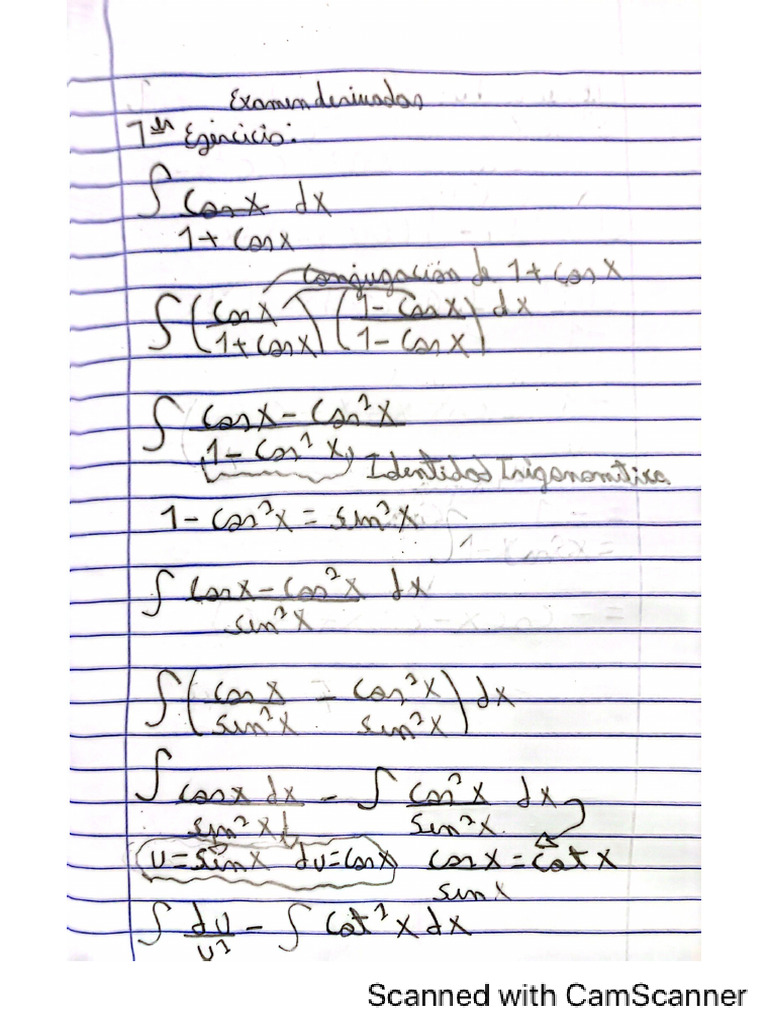 Examen derivadas
1er Ejercicio:
∫ cos x / 1 + cos x dx
conjugación de 1 + cos x
∫ (cos x / 1 + cos x) (1 - cos x / 1 - cos x) dx
∫ cos x - cos² x / 1 - cos² x
Identidad Trigonometrica
1 - cos² x = sin² x
∫ cos x - cos² x / sin² x dx
∫ (cos x / sin² x - cos² x / sin² x) dx
∫ cos x dx / sin² x - ∫ cos² x / sin² x dx
u = sin x du = cos x cos x / sin x = cot x
∫ du / u² - ∫ cot² x dx
Scanned with CamScanner